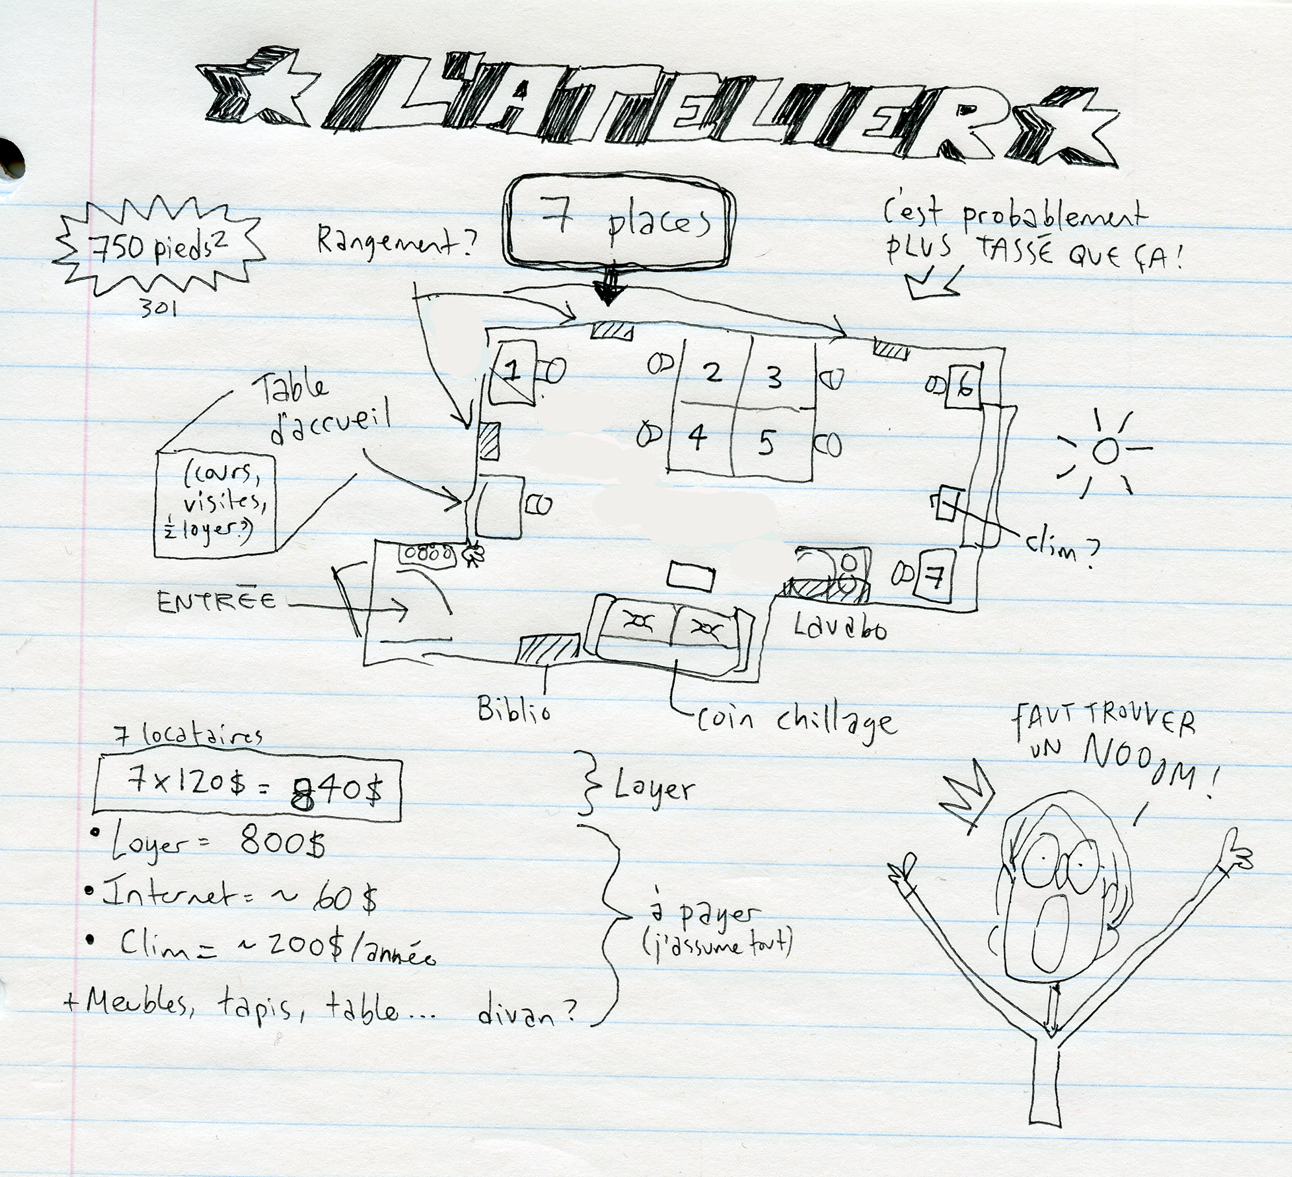 L'ATELIER
750 pieds²
301
Rangement?
7 places
c'est probablement
PLUS TASSÉ QUE ÇA!
Table
d'accueil
(cours,
visites,
½ loyer?)
1
2
3
4
5
6
7
clim?
ENTRÉE
Lavabo
Biblio
coin chillage
7 locataires
7x120$ = 840$
} Loyer
• Loyer = 800$
• Internet = ~ 60$
• Clim = ~ 200$/année
+ Meubles, tapis, table... divan?
à payer
(j'assume tout)
FAUT TROUVER
UN NOOOM!